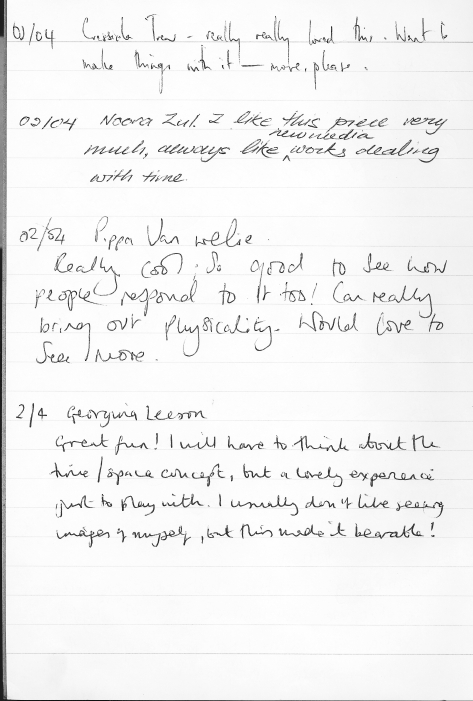 02/04 Trew - really really loved this. Want to
make things with it - more, please.
02/04 Noora Zul. I like this piece very
new media
much, always like ^ works dealing
with time.
02/04 Pippa Van Welie.
Really cool. So good to see how
people respond to it too! Can really
bring out physicality. Would love to
see more.
2/4 Georgina Leeson
Great fun! I will have to think about the
time/space concept, but a lovely experience
just to play with. I usually don't like seeing
images of myself, but this made it bearable!